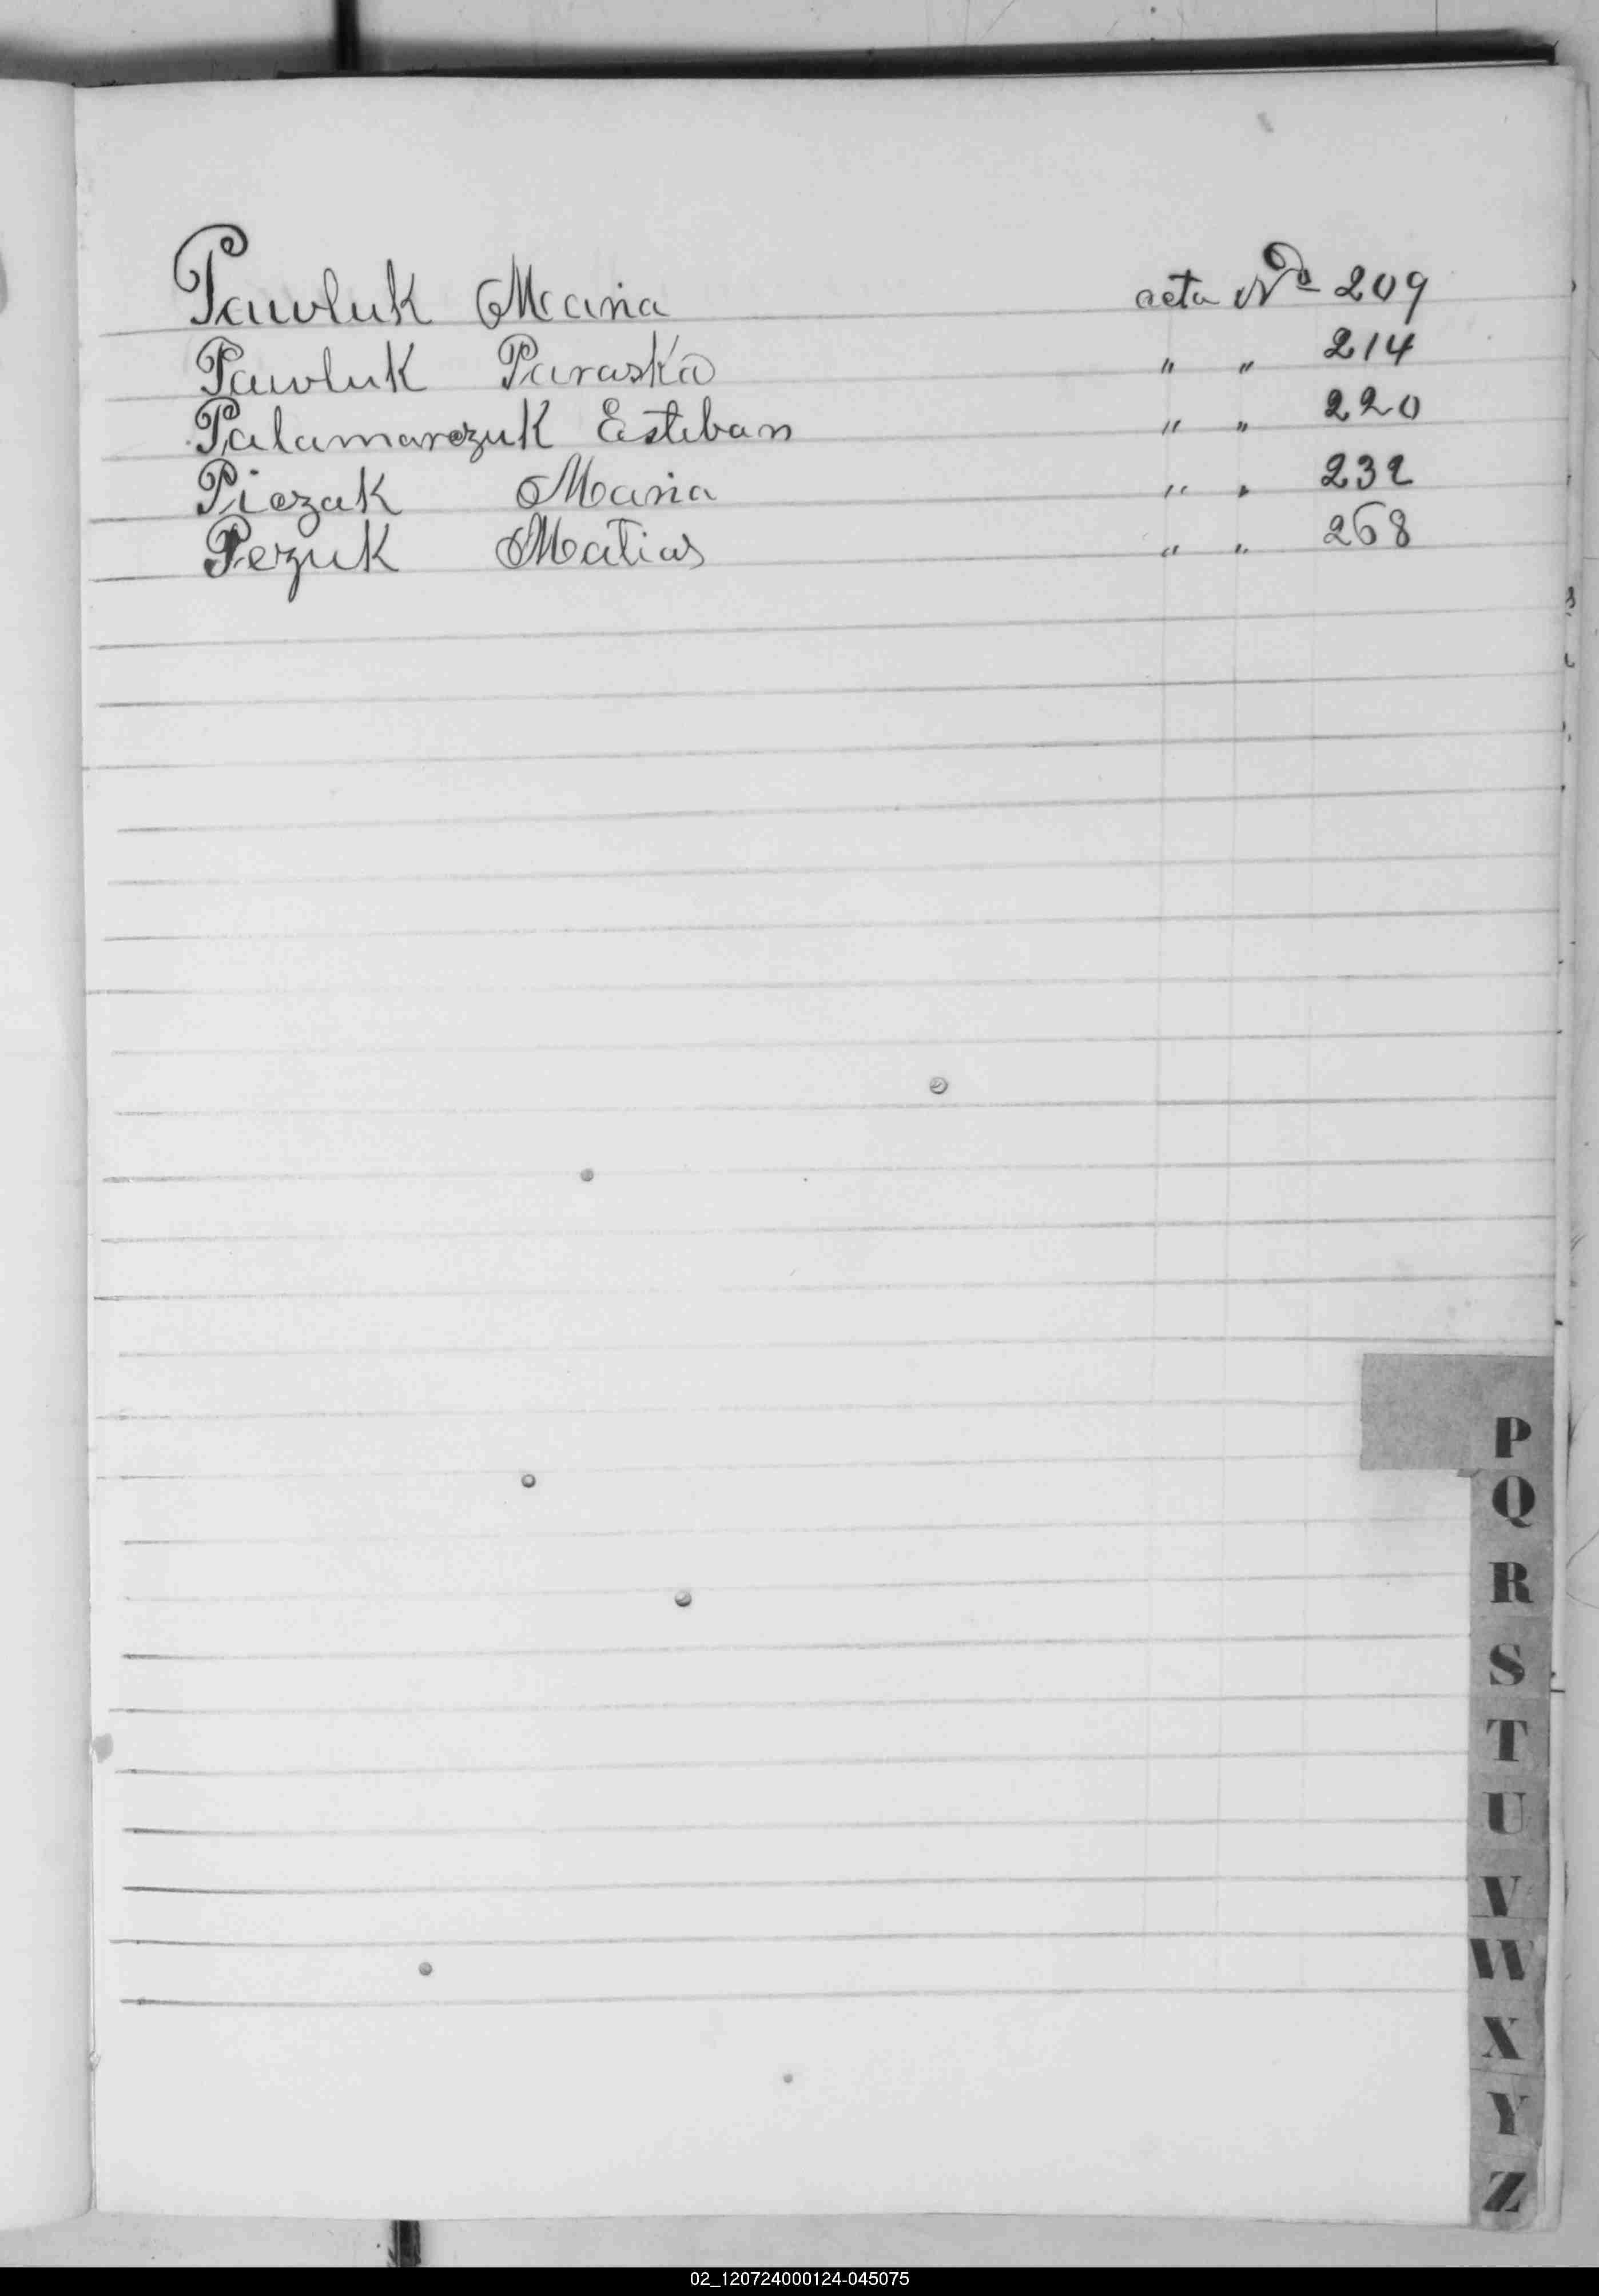 Pawluk Maria acta Nº 209
Pawluk Paraska " " 214
Palamarczuk Esteban " " 220
Piczak Maria " " 232
Pezuk Matias " " 268
P
Q
R
S
T
U
V
W
X
Y
Z
02_120724000124-045075